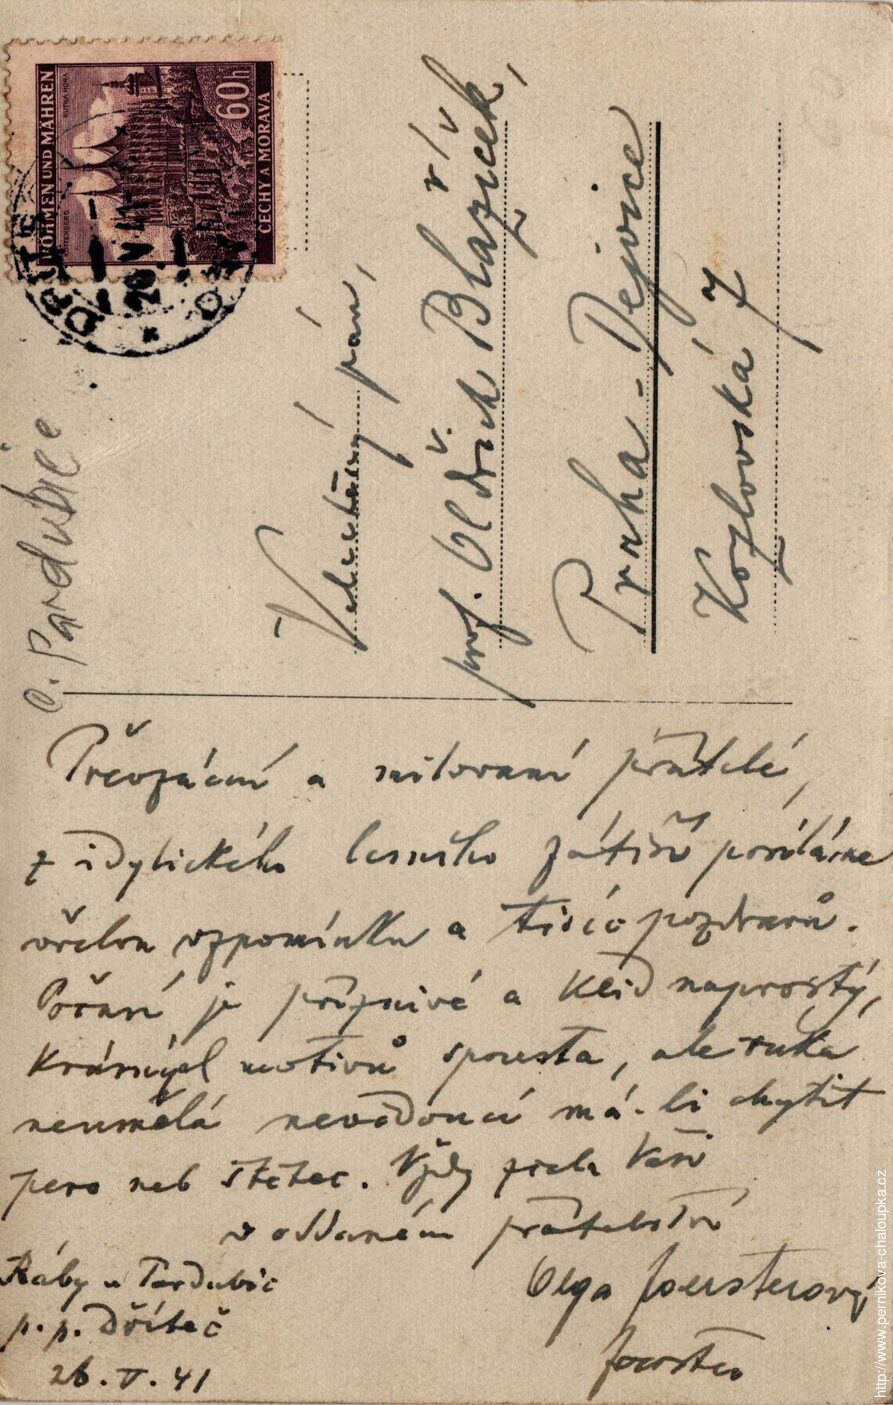 BÖHMEN UND MÄHREN
60h
ČECHY A MORAVA
o. Pardubice
Velectěný pán,
prof. Oldřich Blažíček,
Praha-Dejvice
Kozlovská 7
Převzácní a milovaní přátelé,
z idylického lesního zátiší posíláme
vřelou vzpomínku a tisíc pozdravů.
Počasí je příznivé a klid naprostý,
krásných motivů spousta, ale ruka
neumělá nevědoucí má-li chytit
pero neb štětec. Vždy zcela Vaši
v oddaném přátelství
Olga Foersterová
Foerster
Ráby u Pardubic
p.p. Dříteč
26.V.41
http://www.pernikova-chaloupka.cz